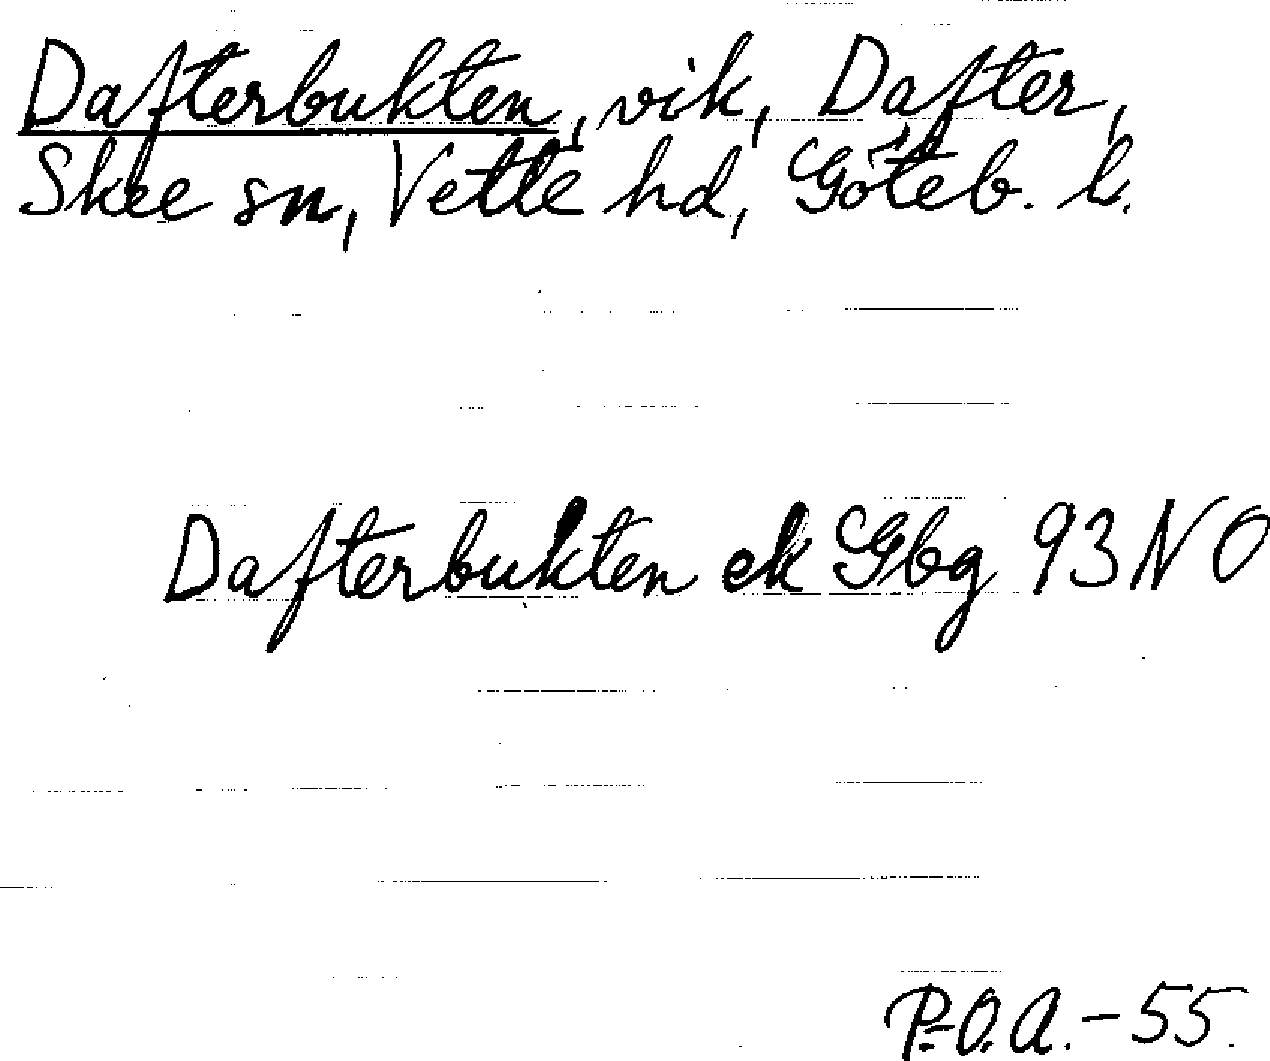 Dafterbukten, vik, Dafter,
Skee sn, Vette hd, Göteb. l.
Dafterbukten ek Gbg 93 NO
P.O.A. - 55.